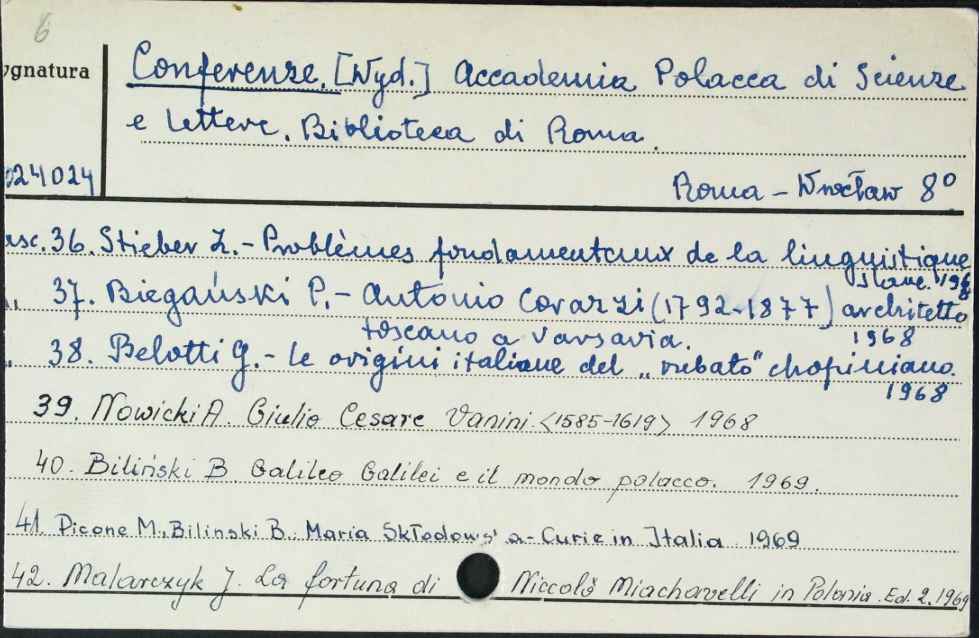 6
ygnatura
Conferenze. [Wyd.] Accademia Polacca di Scienze
e Lettere. Biblioteca di Roma.
024024
Roma - Wrocław 8°
asc. 36. Stieber Z. - Problèmes fondamentaux de la linguistique
slave. 1968
" 37. Biegański P. - Antonio Corazzi (1792-1877) architetto
toscano a Varsavia. 1968
" 38. Belotti G. - Le origini italiane del „rubato" chopiniano.
1968
39. Nowicki A. Giulio Cesare Vanini <1585-1619> 1968
40. Biliński B. Galileo Galilei e il mondo polacco. 1969.
41. Picone M., Bilinski B. Maria Skłodows'a-Curie in Italia 1969
42. Malarczyk J. La fortuna di Niccolò Miachavelli in Polonia. Ed. 2. 1969